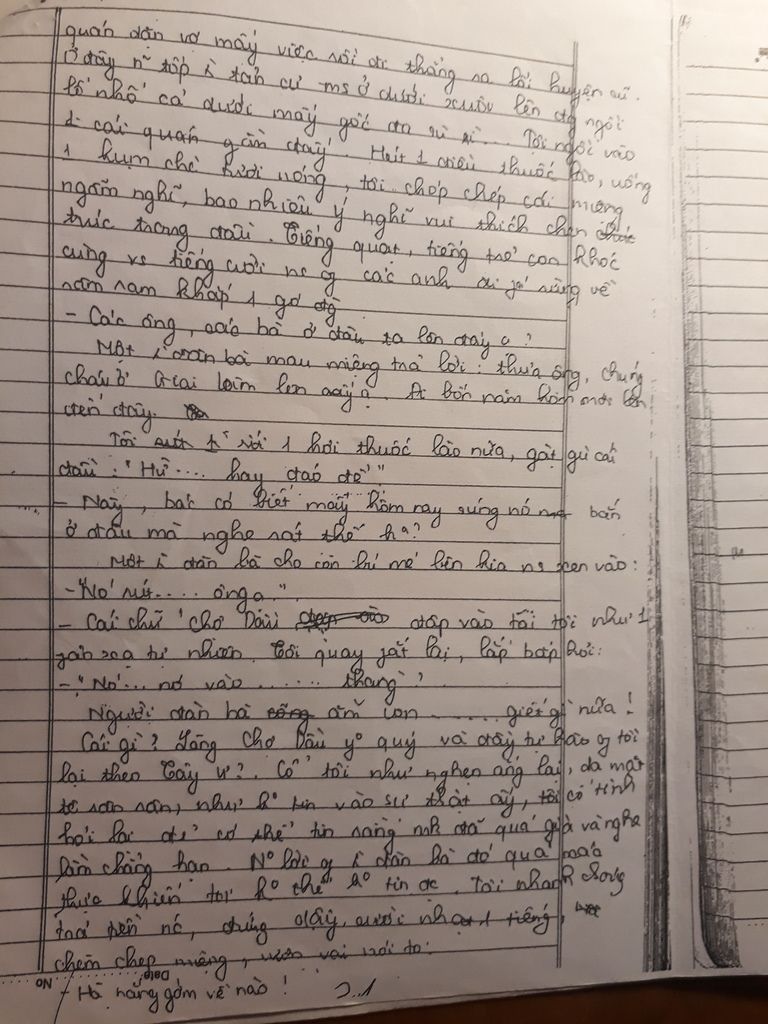 quán dặn vợ mấy việc rồi đi thẳng ra lối huyện cũ.
Ở đây n~ tốp i tản cư ms ở dưới xuôi lên đg ngồi
lố nhố cả dưới mấy gốc đa sù sì... Tôi ngồi vào
1 cái quán gần đấy. Hút 1 điếu thuốc lào, uống
1 hụm chè tươi nóng, tôi chóp chép cái miệng
ngẫm nghĩ, bao nhiêu ý nghĩ vui thích chen chúc
trong đầu. Tiếng quạt, tiếng trẻ con khóc
cùng vs tiếng cười ns
các anh
về
rôm ram khắp 1 góc đg
- Các ông, các bà ở đâu ta lên đấy ạ?
Một i đàn bà mau miệng trả lời: thưa ông, chúng
cháu ở Gia Lâm lên đấy ạ. Đi bốn năm hôm mới lên
đến đây.
Tôi 1 hơi thuốc lào nữa, gật gù cái
đầu: "Hừ.... hay đáo để"
- Này, bác có biết mấy hôm nay súng nó bắn
ở đâu mà nghe rát thế h°?
Một i đàn bà cho con bú mé bên kia ns xen vào:
- "Nó rút..... ông ạ".
- Cái chữ "Chợ Dầu đập vào tai tôi như 1
tự nhiên. Tôi quay lại, lắp bắp hỏi:
- "Nó... nó vào ....... thằng?
Người đàn bà ẵm con ........ giết gì nữa!
Cái gì? Làng Chợ Dầu yêu quý và đầy tự hào of tôi
lại theo Tây ư?. Cổ tôi như nghẹn ắng lại, da mặt
tê rân rân, như k° tin vào sự thật ấy, tôi cố tình
hỏi lại để có thể tin rằng mh đã quá già và nghe
lầm chẳng hạn. N° lời of i đàn bà đó quá xác
thực khiến tôi k° thể k° tin đc. Tôi nhanh chóng
trả tiền nc, đứng dậy, cười nhạt 1 tiếng,
chèm chẹp miệng, vươn vai nói to:
- Hà nắng gớm về nào!
No
Date